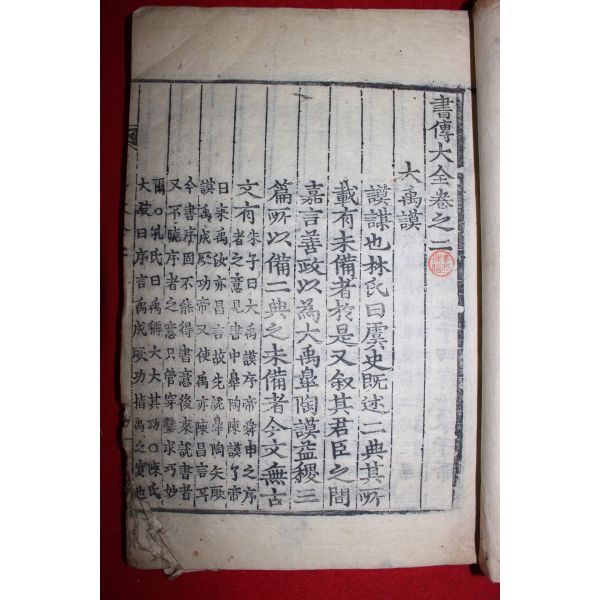 書傳大全卷之二
大禹謨
謨謀也林氏曰虞史既述二典其所
載有未備者於是又叙其君臣之間
嘉言善政以為大禹皐陶謨益稷三
篇所以備二典之未備者今文無古
文有朱子曰大禹謨序帝舜申之序
者之意見書中皐陶陳謨了帝
曰來禹汝亦昌言故先說皐陶矢厥
謨禹成厥功帝又使禹亦陳昌言耳
今書序固不能得書意後來說書者
又不曉序者之意只管穿鑿求巧妙
爾○孔氏曰禹稱大大其功○陳氏
大猷曰序言禹成厥功指禹之實也